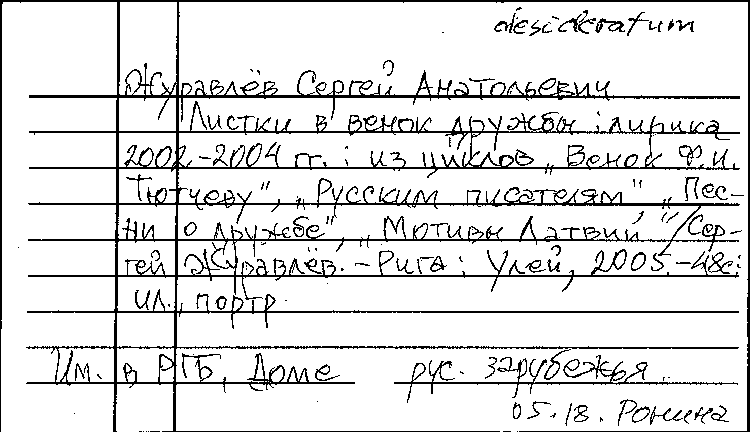 desideratum
Журавлёв Сергей Анатольевич
Листки в венок дружбы : лирика
2002-2004 гг. : из циклов „Венок Ф.И.
Тютчеву", „Русским писателям", „Пес-
ни о дружбе", „Мотивы Латвии" / Сер-
гей Журавлёв. - Рига : Улей, 2005. - 48с.:
ил., портр
Им. в РГБ, Доме рус. зарубежья
05.18. Ронина